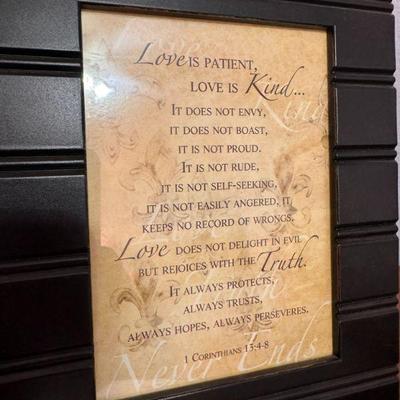 Love is patient,
love is Kind...
It does not envy,
it does not boast,
it is not proud.
It is not rude,
it is not self-seeking,
it is not easily angered, it
keeps no record of wrongs.
Love does not delight in evil
but rejoices with the Truth.
It always protects,
always trusts,
always hopes, always perseveres.
1 Corinthians 13:4-8
Never Ends